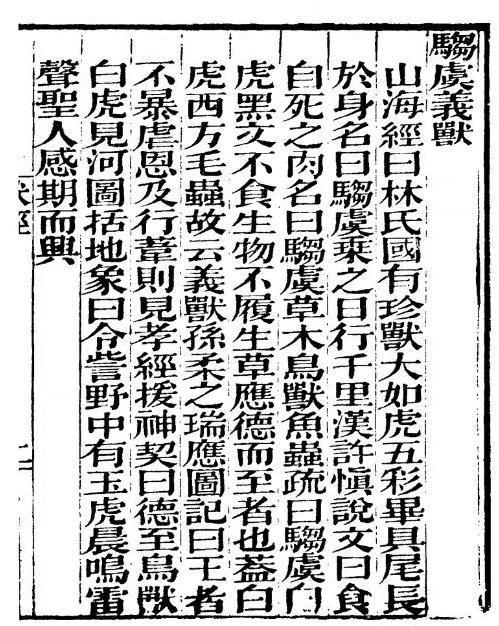 騶虞義獸
山海經曰林氏國有珍獸大如虎五彩畢具尾長
於身名曰騶虞乘之日行千里漢許慎說文曰食
自死之肉名曰騶虞草木鳥獸魚蟲疏曰騶虞白
虎黑文不食生物不履生草應德而至者也葢白
虎西方毛蟲故云義獸孫柔之瑞應圖記曰王者
不暴虐恩及行葦則見孝經援神契曰德至鳥獸
白虎見河圖括地象曰令訾野中有玉虎晨鳴雷
聲聖人感期而興